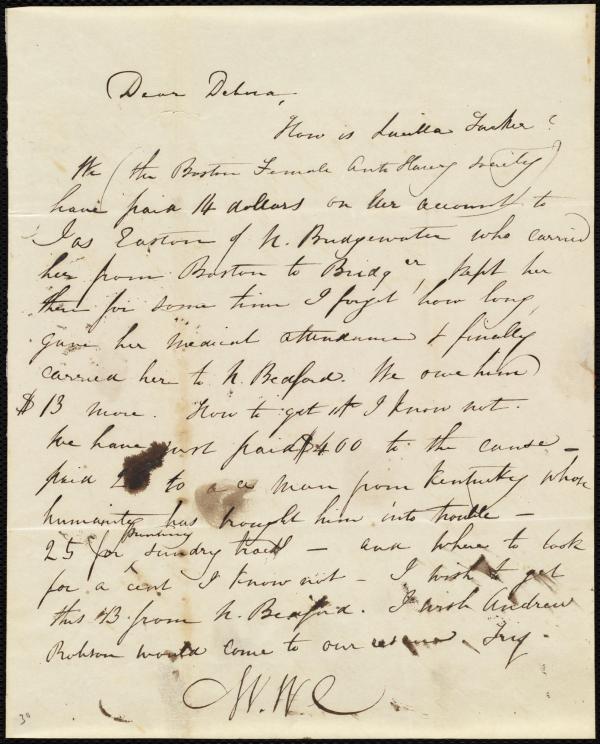 Dear Debora,
How is Lucilla Tucker?
We (the Boston Female Anti Slavery Society)
have paid 14 dollars on her account to
Jas Easton of N. Bridgewater who carried
her from Boston to Bridger, kept her
there for some time I forget how long,
gave her medical attendance & finally
carried her to N. Bedford. We owe him
$13 more. How to get it I know not.
We have just paid $400 to the cause -
paid to a a man from Kentucky whose
humanity has brought him into trouble -
25 for printing sundry tracts - and where to look
for a cent I know not - I wish to get
this 13 from N. Bedford. I wish Andrew
Robson would come to our rescue. Try.
W.W.C
30